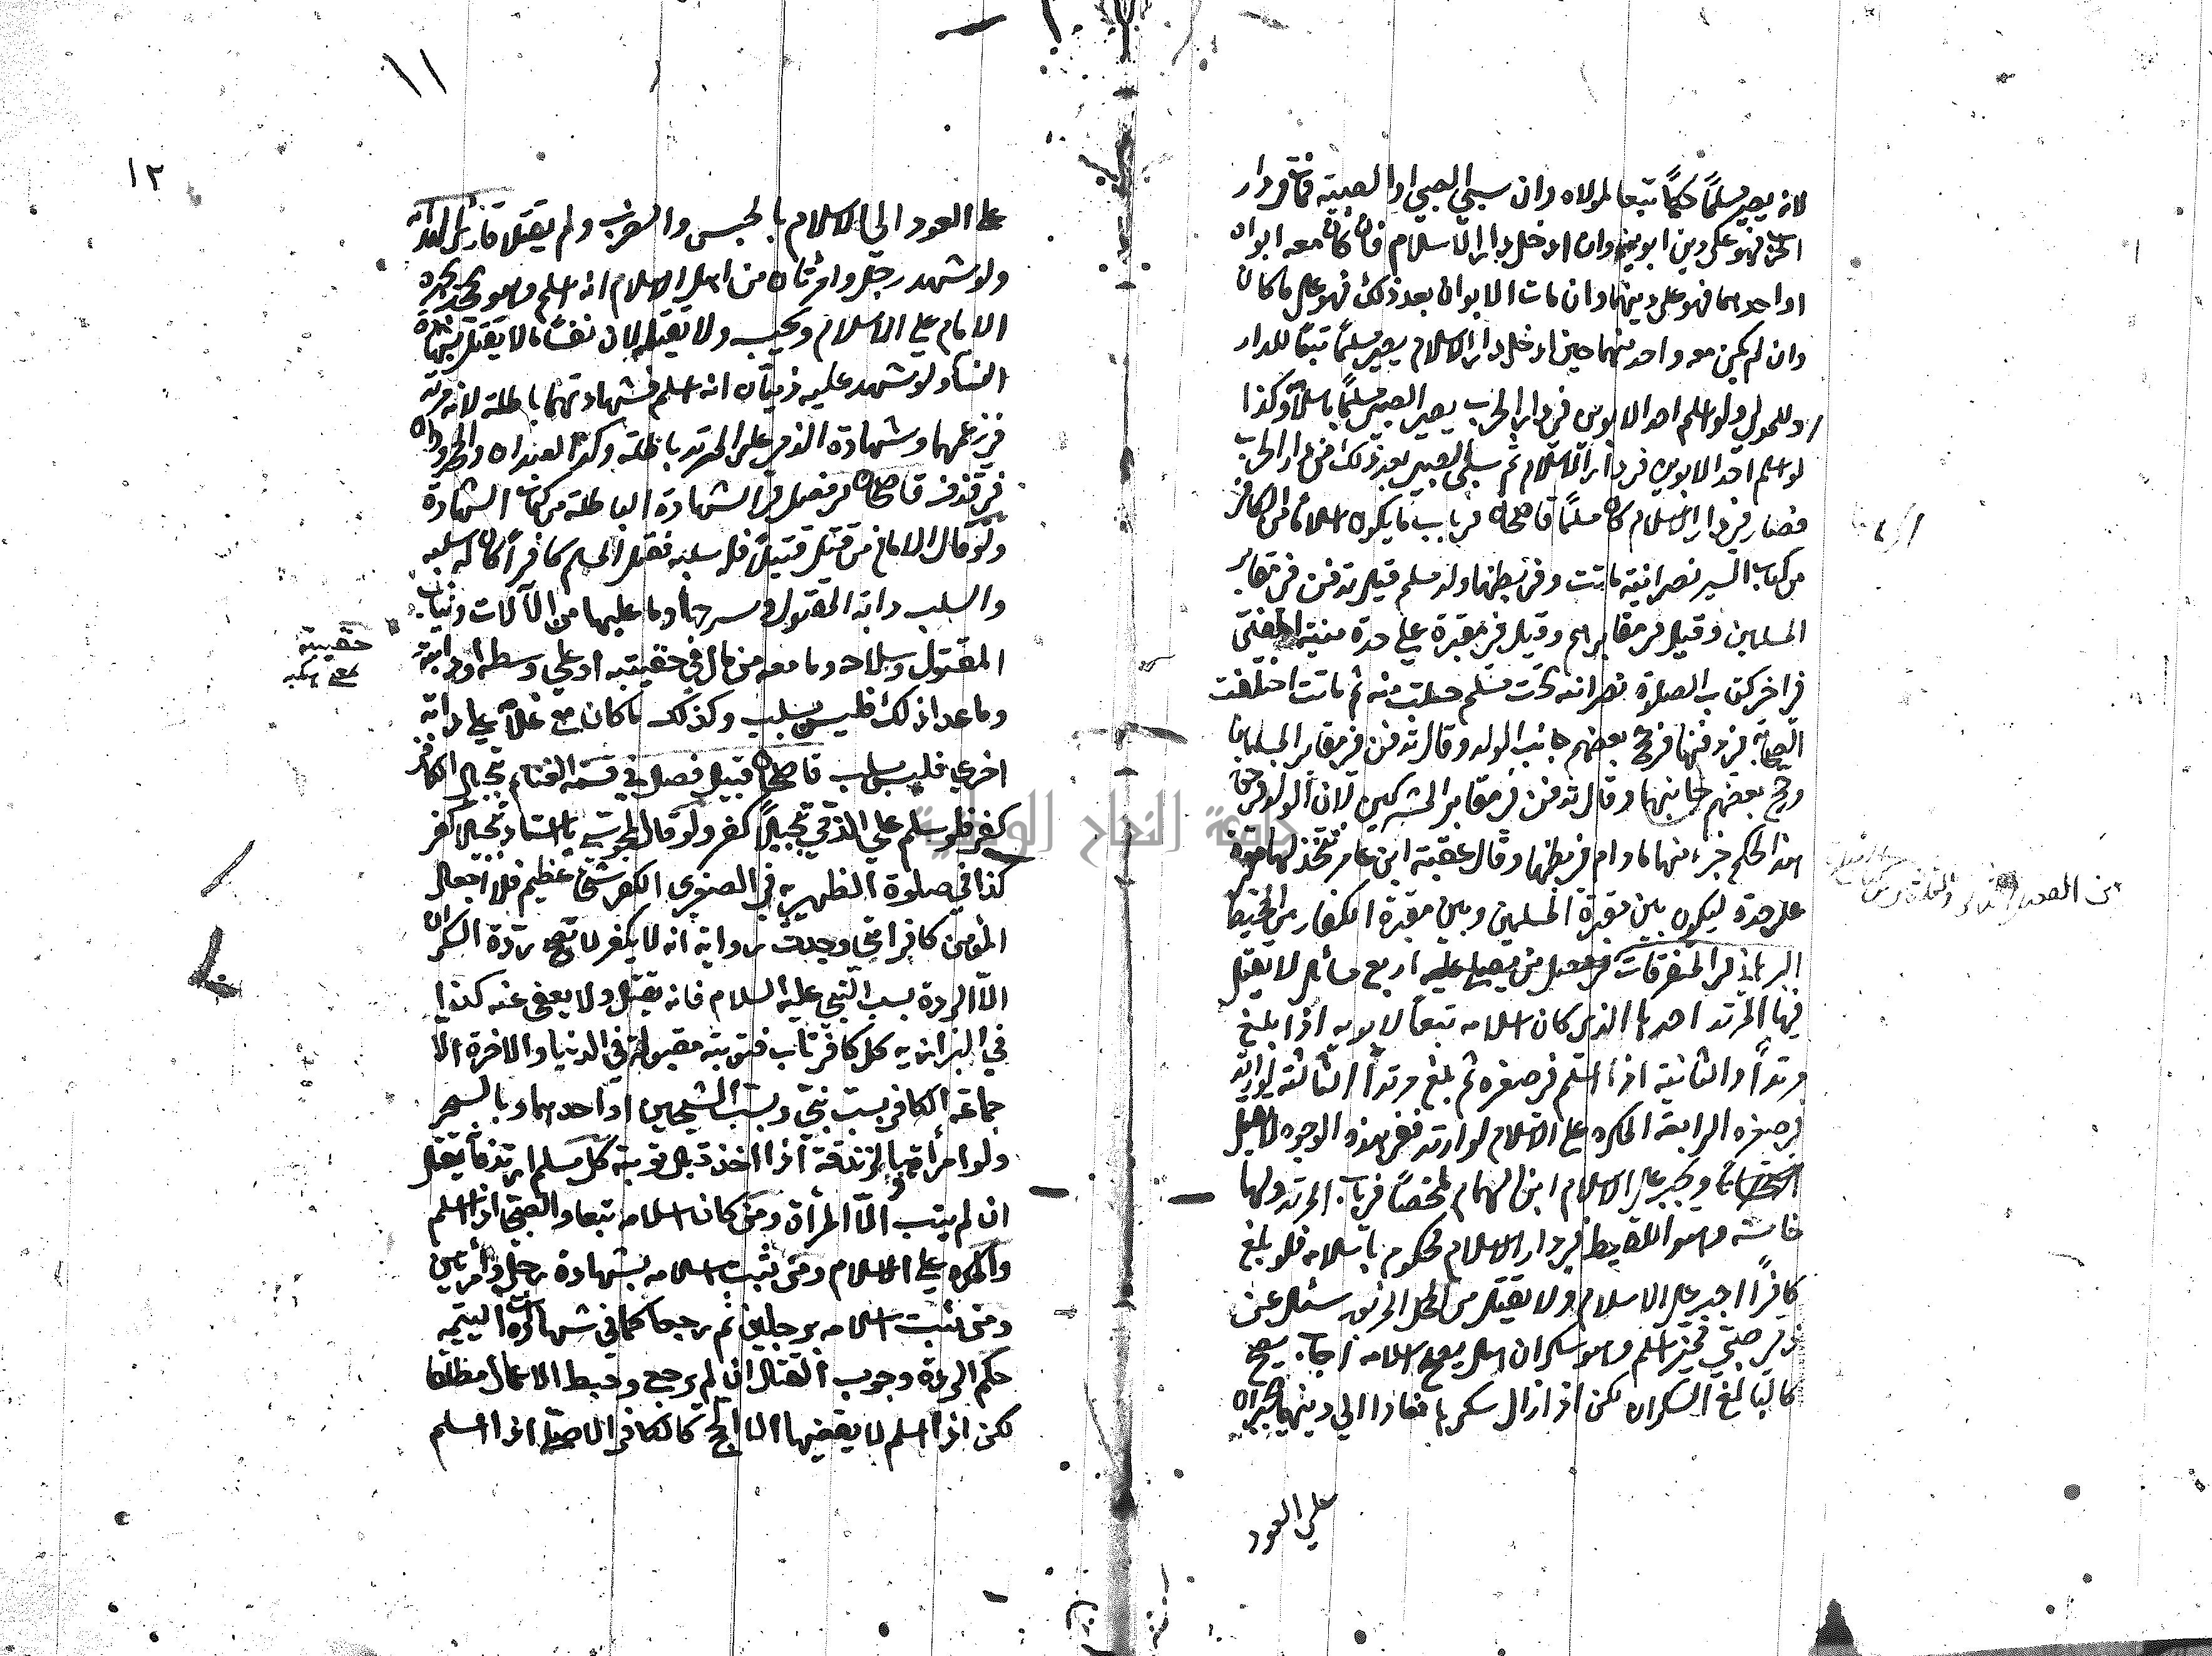 لانه يصير مسلما حكما تبعا لمولاه وان سبي الصبي او الصبية فمات في دار
الحرب فهو على دين ابويه وان ادخل دار الاسلام فان كان معه ابواه
او احدهما فهو على دينهما وان مات الابوان بعد ذلك فهو على ما كان
وان لم يكن معه واحد منهما حين ادخل دار الاسلام يصير مسلما تبعا للدار
او للمولى ولو اسلم احد الابوين في دار الحرب يصير الصبي مسلما باسلامه وكذا
لو اسلم احد الابوين في دار الاسلام ثم سبي الصبي بعد ذلك من دار الحرب
فصار في دار الاسلام كان مسلما قاضيخان في باب ما يكون اسلاما من الكافر
من كتاب السير نصرانية ماتت وفي بطنها ولد مسلم قيل تدفن في مقابر
المسلمين وقيل في مقابرهم وقيل في مقبرة على حدة منية المفتي
في اخر كتاب الصلاة نصرانية تحت مسلم حبلت منه ثم ماتت اختلفت
الصحابة في دفنها فرجح بعضهم جانب الولد وقال تدفن في مقابر المسلمين
ورجح بعضهم جانبها وقال تدفن في مقابر المشركين لان الولد في حق
هذا الحكم جزء منها ما دام في بطنها وقال عقبة ابن عامر تتخذ لها مقبرة
على حدة ليكون بين مقبرة المسلمين وبين مقبرة الكفار من المحيط
البرهاني في المتفرقات اربع مسائل لا يقتل
فيها المرتد احدها الذي كان اسلامه تبعا لابويه اذا بلغ
مرتدا والثانية اذا اسلم في صغره ثم بلغ مرتدا الثالثة لو ارتد
في صغره الرابعة المكره على الاسلام لو ارتد ففي هذه الوجوه لا يقتل
استحسانا ويجبر على الاسلام ابن الهمام ملخصا في باب المرتد ولها
خامسة وهو اللقيط في دار الاسلام محكوم باسلامه فلو بلغ
كافرا اجبر على الاسلام ولا يقتل من المحل المزبور سئل عن
ذمي صبي مميز اسلم وهو سكران هل يصح اسلامه اجاب يصح
كالبالغ السكران لكن اذا زال سكرهما فعادا الى دينهما يجبران
على العود
١١
١٢
على العود الى الاسلام بالحبس والضرب ولم يقتلا قارئ الهداية
ولو شهد رجل وامرتان من اهل الاسلام انه اسلم وهو يجحد يجبره
الامام على الاسلام ويحبسه ولا يقتله لان نفسا ما لا يقتل بشهادة
النساء ولو شهد عليه ذميان انه اسلم فشهادتهما باطلة لانه مرتد
في زعمهما وشهادة الذمي على المرتد باطلة وكذا العبدان والمحدودان
في قذف قاضيخان في فصل في الشهادة الباطلة من كتاب الشهادة
ولو قال الامام من قتل قتيلا فله سلبه فقتل المسلم كافرا كان له سلبه
والسلب دابة المقتول وسرجها وما عليها من الآلات وثياب
المقتول وسلاحه وما معه من مال في حقيبته او على وسطه او دابته
وما عدا ذلك فليس بسلب وكذلك ما كان مع غلامه على دابة
اخرى فليس بسلب قاضيخان قبيل فصل في قسمة الغنائم تبجيل الكافر
كفر فلو سلم على الذمي تبجيلا كفر ولو قال للمجوسي يا استاد تبجيلا كفر
كذا في صلوة الظهيرية في الصغرى الكفر شئ عظيم فلا اجعل
المؤمن كافرا متى وجدت رواية انه لا يكفر لا تصح ردة السكران
الا الردة بسب النبي عليه السلام فانه يقتل ولا يعفى عنه كذا
في البزازيه كل كافر تاب فتوبته مقبولة في الدنيا والاخرة الا
جماعة الكافر بسب نبي وبسب الشيخين او احدهما وبالسحر
ولو امرأة وبالزندقة اذا اخذ قبل توبته كل مسلم ارتد فانه يقتل
ان لم يتب الا المرأة ومن كان اسلامه تبعا والصبي اذا اسلم
والمكره على الاسلام ومن ثبت اسلامه بشهادة رجل وامرأتين
ومن ثبت اسلامه برجلين ثم رجعا كما في شهادات اليتيمه
حكم الردة وجوب القتل ان لم يرجع وحبط الاعمال مطلقا
لكن اذا اسلم لا يقضيها الا الحج كالكافر الاصلي اذا اسلم
حقيبته
جامعة النجاح الوطنية